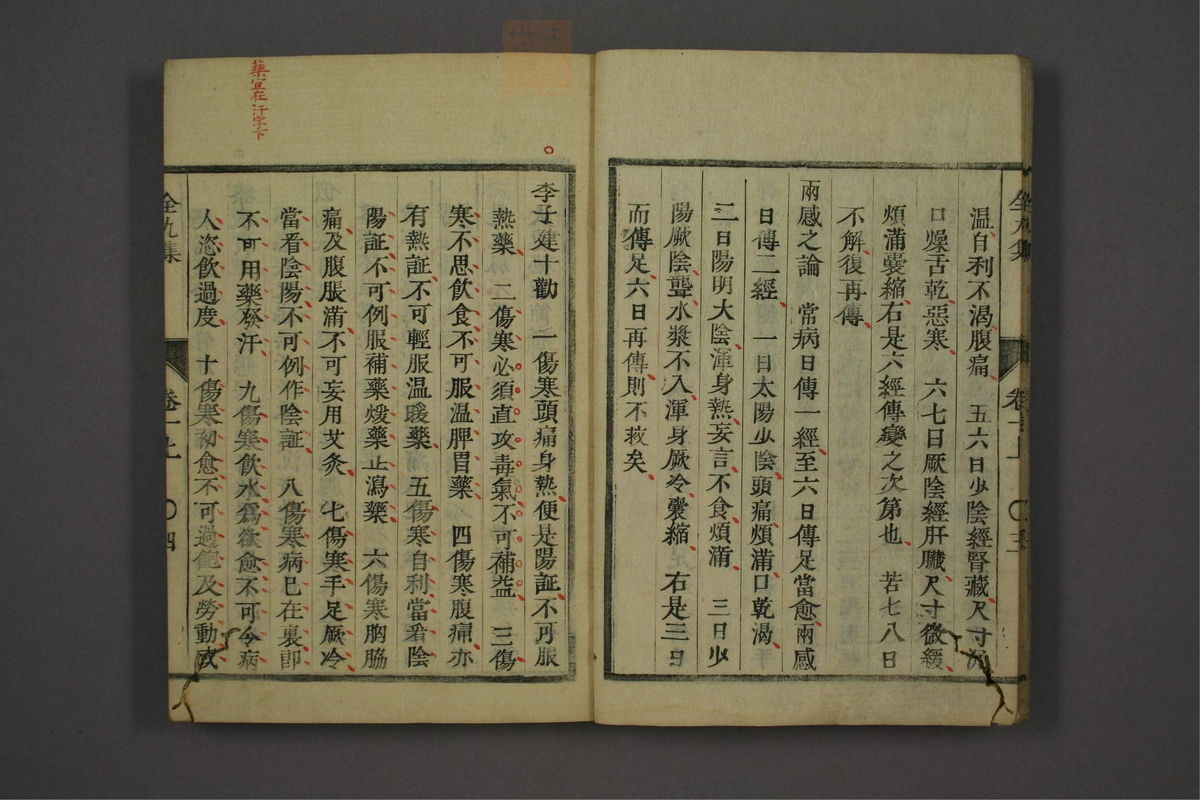 溫自利不渴腹痛　五六日少陰經腎藏尺寸沉
口燥舌乾惡寒　六七日厥陰經肝臟尺寸微緩
煩滿囊縮右是六經傳變之次第也　若七八日
不解復再傳
兩感之論　常病日傳一經至六日傳足當愈兩感
日傳二經　一日太陽少陰頭痛煩滿口乾渴
二日陽明大陰渾身熱妄言不食煩滿　三日少
陽厥陰聾水漿不入渾身厥冷囊縮　右是三日
而傳足六日再傳則不救矣
李子建十勸　一傷寒頭痛身熱便是陽証不可服
熱藥　二傷寒必須直攻毒氣不可補益　三傷
寒不思飲食不可服溫脾胃藥　四傷寒腹痛亦
有熱証不可輕服温暖藥　五傷寒自利當看陰
陽証不可例服補藥煖藥止瀉藥　六傷寒胸脇
痛及腹脹滿不可妄用艾灸　七傷寒手足厥冷
當看陰陽不可例作陰証　八傷寒病已在裏即
不可用藥發汗　九傷寒飲水爲欲愈不可令病
人恣飲過度　十傷寒初愈不可過飽及勞動或
藥宜在汗字下
全九集
卷一上
三
全九集
卷一上
四